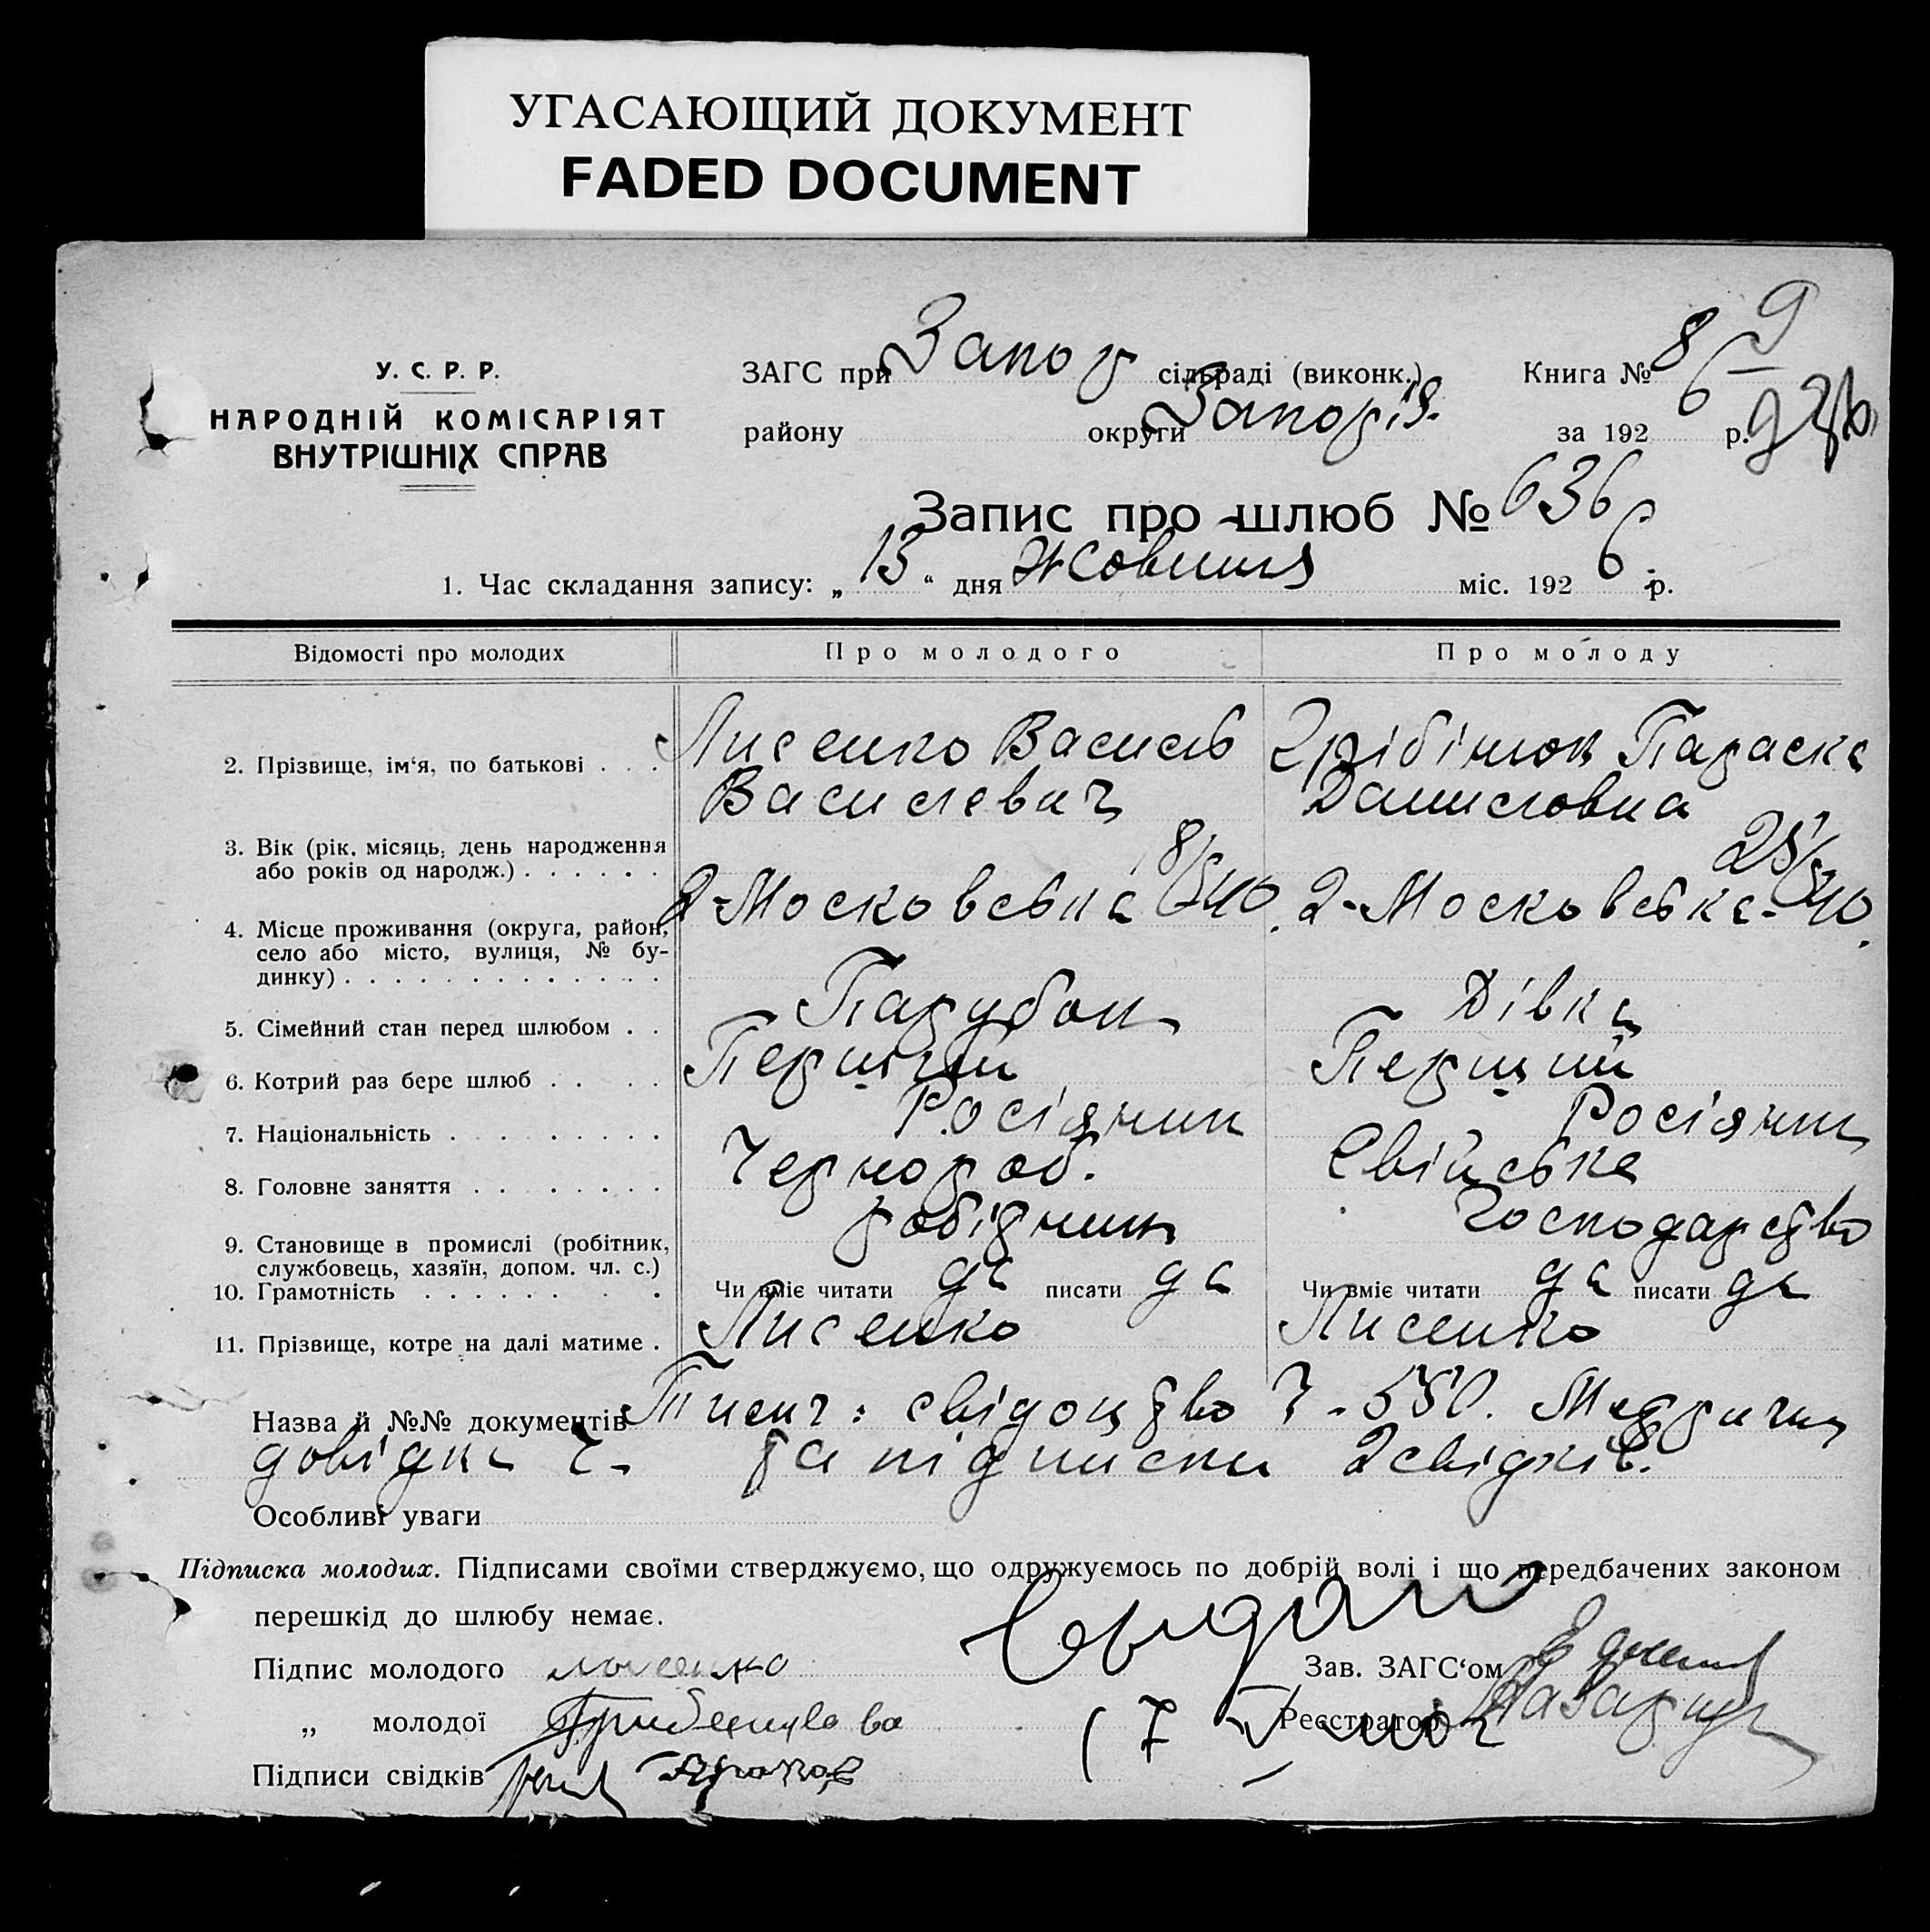 УГАСАЮЩИЙ ДОКУМЕНТ
FADED DOCUMENT
У. С. Р. Р.
НАРОДНІЙ КОМІСАРІЯТ
ВНУТРІШНІХ СПРАВ
ЗАГС при Запор сільраді (виконк.)
Книга № 8 9
району округи Запоріз. за 192 6 р.
Запис про шлюб № 636
1. Час складання запису: „ 13 “ дня Жовтня міс. 192 6 р.
Відомості про молодих Про молодого Про молоду
2. Прізвище, ім‘я, по батькові . . . Лисенко Василь Грібінюк Параска
Василевич Данисловна
3. Вік (рік, місяць, день народження
або років од народж.) . . . . . .
4. Місце проживання (округа, район, 2-Московська 8/40. 2-Московська 40.
село або місто, вулиця, № бу-
динку) . . . . . . . . . . . . .
5. Сімейний стан перед шлюбом . . Парубок Дівка
6. Котрий раз бере шлюб . . . . Перший Перший
7. Національність . . . . . . . . Росіянин Росіянин
8. Головне заняття . . . . . . . . Чернороб. Свійське
робітник господарство
9. Становище в промислі (робітник,
службовець, хазяїн, допом. чл. с.)
10. Грамотність . . . . . . . . Чи вміє читати да писати да Чи вміє читати да писати да
11. Прізвище, котре на далі матиме . Лисенко Лисенко
Назва й №№ документів Тимч: свідоцтво Ч-550. Метрична
довідка Ч- та підписки 2 свідків.
Особливі уваги
Підписка молодих. Підписами своїми стверджуємо, що одружуємось по добрій волі і що передбачених законом
перешкід до шлюбу немає.
Підпис молодого лисенко Зав. ЗАГС‘ом
„ молодої Реєстратор
Підписи свідків